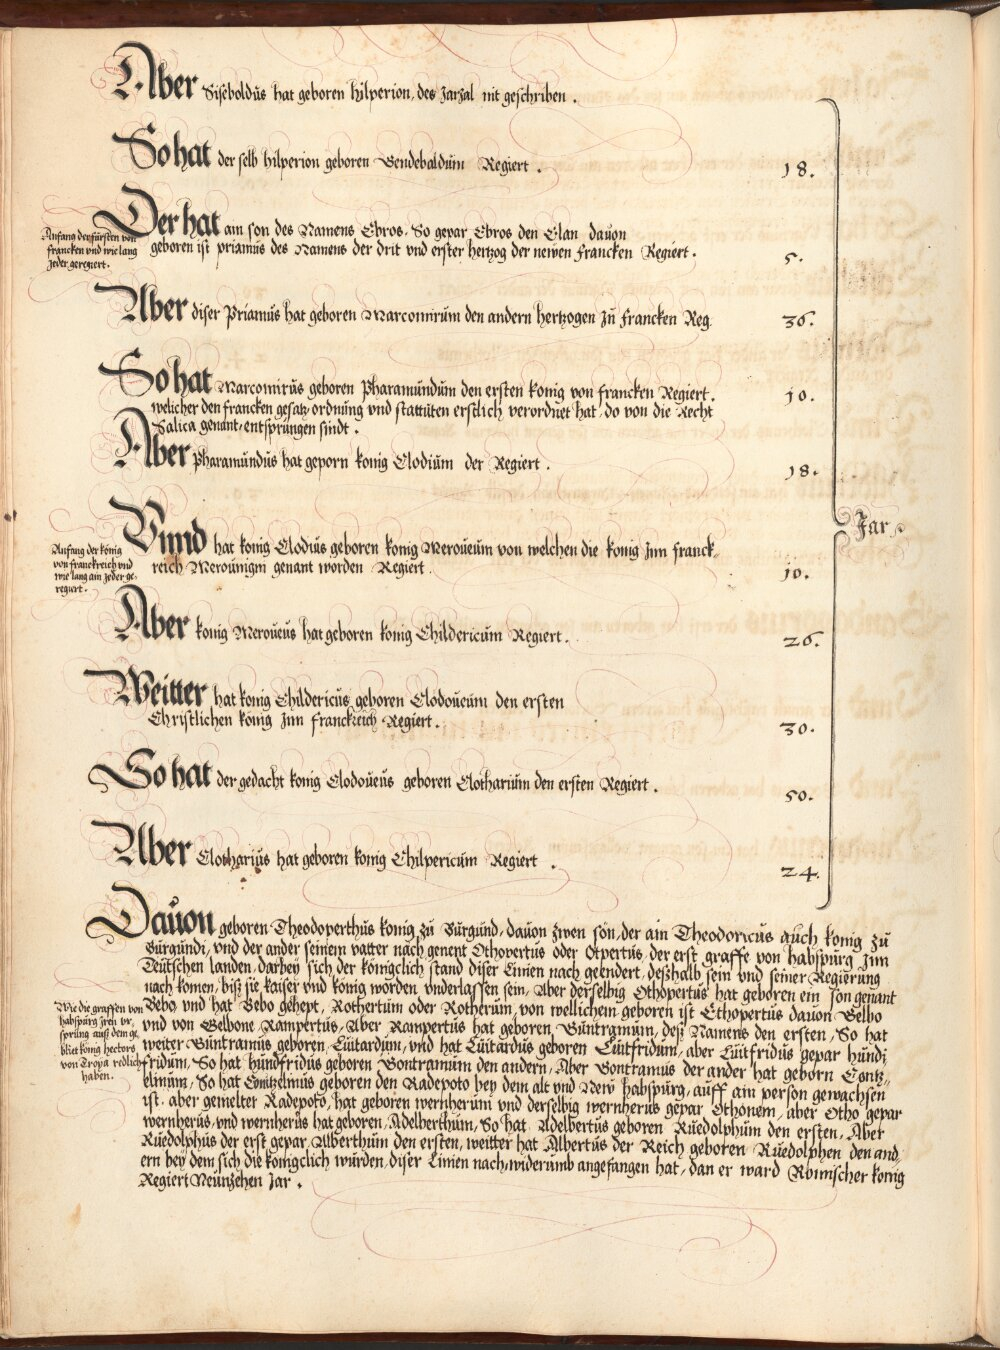 Aber Sisebaldus hat geboren hilperion, des Jarzal nit geschriben.
So hat der selb hilperion geboren Bendebaldum Regiert. 18.
Der hat ain son des Namens Ebros. So gepar Ebros den Elan dauon
geboren ist priamus des Namens der drit vnd erster hertzog der newen francken Regiert. 5.
Anfang der fürsten von
francken vnd wie lang
jeder geregiert.
Aber diser Priamus hat geboren Marcomirum den andern hertzogen zu francken Reg. 36.
So hat Marcomirus geboren Pharamundum den ersten konig von francken Regiert. 10.
welicher den francken gesatz ordnung vnd stattuten erstlich verordnet hat, do von die Recht
Salica genant, entsprungen sindt.
Aber Pharamundus hat geporn konig Clodium der Regiert. 18.
Jar.
Vnnd hat konig Clodius geboren konig Meroueum von welchen die konig Inn franck-
reich Merouingin genant worden Regiert. 10.
Anfang der könig
von franckreich vnd
wie lang ain jeder ge-
regiert.
Aber konig Meroueus hat geboren konig Childericum Regiert. 26.
Weitter hat konig Childericus geboren Clodoueum den ersten
Christlichen konig Inn franckreich Regiert. 30.
So hat der gedacht konig Clodoueus geboren Clotharium den ersten Regiert. 50.
Aber Clotharius hat geboren konig Chilpericum Regiert. 24.
Dauon geboren Theodoperthus konig zu Burgund, dauon zwen sön, der ain Theodoricus auch konig zu
Burgundi, vnd der ander seinem vatter nach genent Othopertus oder Otpertus, der erst graffe von habspurg Inn
Teutschen landen, darbey sich der königclich stand diser Linien nach geendert, deßhalb sein vnd seiner Regierung
nach komen, biß sie kaiser vnd konig worden vnderlassen sein, Aber derselbig Othopertus hat geboren ein son genant
Bebo, vnd hat Bebo gehept, Rothertum oder Rotherum, von wellichem geboren ist Ethopertus dauon Gelbo
vnd von Gelbone Rampertus, Aber Rampertus hat geboren Guntramum, deß Namens den ersten, So hat
weiter Guntramus geboren Luitardum, vnd hat Luitardus geboren Luitfridum, aber Luitfridus gepar hundj
fridum, So hat hundfridus geboren Gontramum den andern, Aber Gontramus der ander hat geborn Contz-
elinum, So hat Contzelinus geboren den Radepoto bey dem alt vnd New habspurg, auff ain person gewachsen
ist. aber gemelter Radepoto, hat geboren wernherum vnd derselbig wernherus gepar Othonem, aber Otho gepar
wernherus, vnd wernherus hat geboren, Adelberthum, So hat Adelbertus geboren Ruedolphum den ersten, Aber
Ruedolphus der erst gepar, Alberthum den ersten, weitter hat Albertus der Reich geboren Ruedolphen den and
ern bey dem sich die königclich würden, diser Linien nach, widerumb angefangen hat, dan er ward Römischer konig
Regiert Neunzehen Jar.
Wie die graffen von
habspurg Iren vr-
sprung auß dem ge-
bliet konig hectors
von Troya redlich
haben.